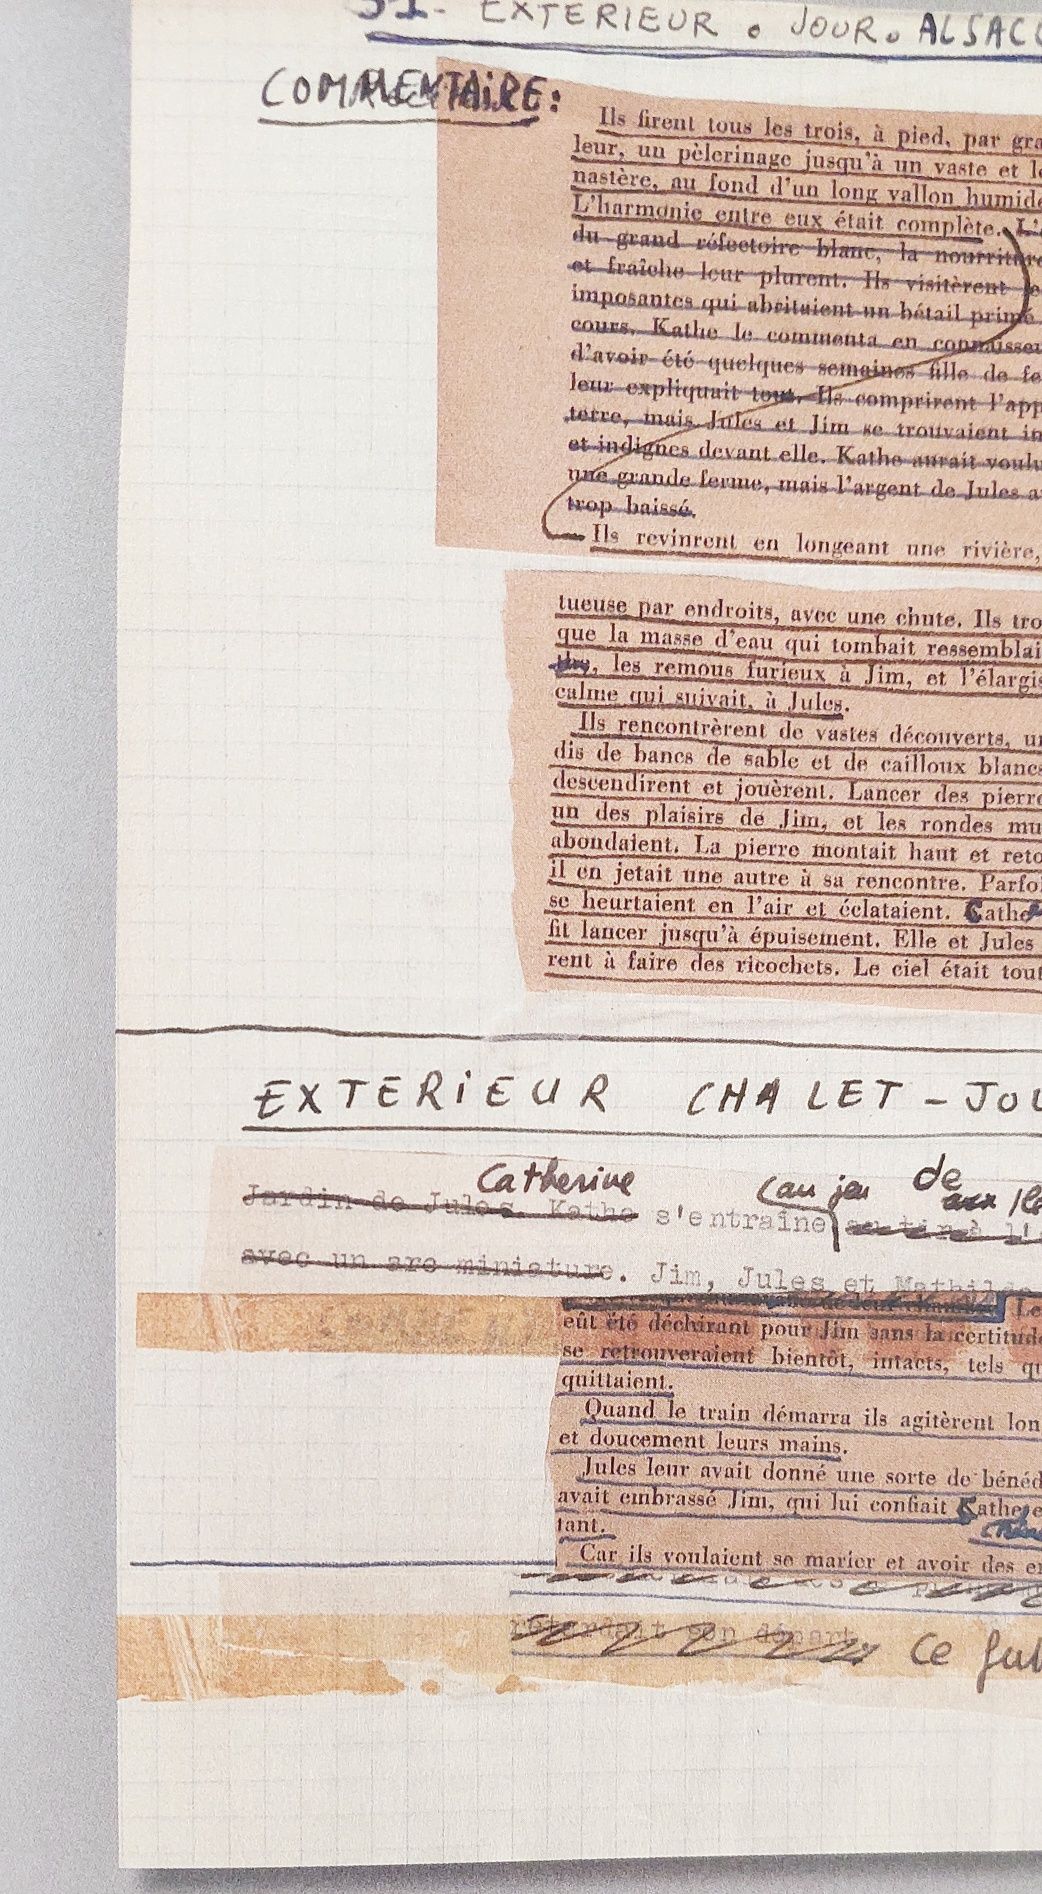 51. EXTERIEUR. JOUR. ALSAC
COMMENTAIRE:
Ils firent tous les trois, à pied, par gra
leur, un pèlerinage jusqu'à un vaste et
nastère, au fond d'un long vallon humid
L'harmonie entre eux était complète. L'
du grand réfectoire blanc, la nourriture
et fraîche leur plurent. Ils visitèrent
imposantes qui abritaient un bétail primé
cours. Kathe le commenta en connaisseu
d'avoir été quelques semaines fille de fe
leur expliquait tout. Ils comprirent l'app
terre, mais Jules et Jim se trouvaient in
et indignes devant elle. Kathe aurait voulu
une grande ferme, mais l'argent de Jules a
trop baissé.
Ils revinrent en longeant une rivière,
tueuse par endroits, avec une chute. Ils tro
que la masse d'eau qui tombait ressemblai
, les remous furieux à Jim, et l'élargis
calme qui suivait, à Jules.
Ils rencontrèrent de vastes découverts, u
dis de bancs de sable et de cailloux blancs
descendirent et jouèrent. Lancer des pierre
un des plaisirs de Jim, et les rondes mu
abondaient. La pierre montait haut et reto
il en jetait une autre à sa rencontre. Parfoi
se heurtaient en l'air et éclataient. Cathe
fit lancer jusqu'à épuisement. Elle et Jules
rent à faire des ricochets. Le ciel était tout
EXTERIEUR CHALET - JOU
Catherine (au jeu de aux
Jardin de Jules. Kathe s'entraîne au tir à l'
avec un arc miniature. Jim, Jules et Mathilde
Le
eût été déchirant pour Jim sans la certitude
se retrouveraient bientôt, intacts, tels qu
quittaient.
Quand le train démarra ils agitèrent lon
et doucement leurs mains.
Jules leur avait donné une sorte de bénéd
avait embrassé Jim, qui lui confiait Kathe e
tant.
Car ils voulaient se marier et avoir des e
retardait son départ. Ce fut